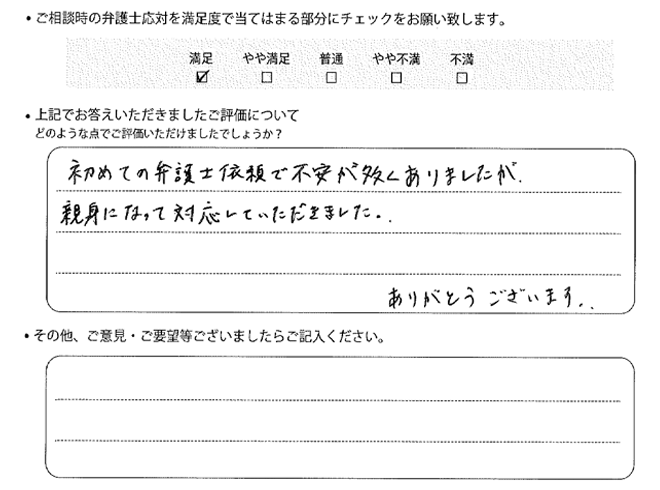 ・ご相談時の弁護士応対を満足度で当てはまる部分にチェックをお願い致します。
満足 やや満足 普通 やや不満 不満
☑ □ □ □ □
・上記でお答えいただきましたご評価について
どのような点でご評価いただけましたでしょうか？
初めての弁護士依頼で不安が多くありましたが、
親身になって対応していただきました。
ありがとうございます。
・その他、ご意見・ご要望等ございましたらご記入ください。